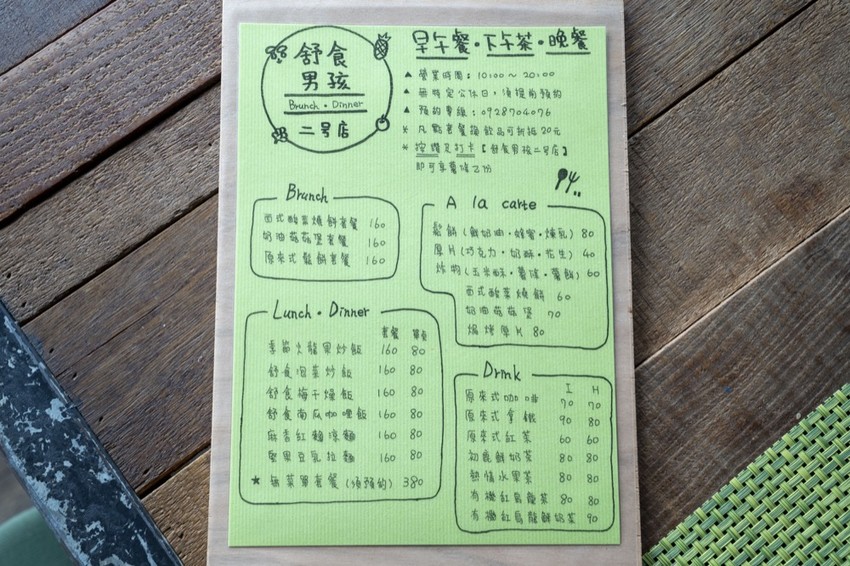 舒食
男孩
Brunch・Dinner
二号店
早午餐・下午茶・晚餐
▲ 營業時間：10:00～20:00
▲ 無特定公休日，須提前預約
▲ 預約專線：0928704076
* 凡點套餐換飲品可折抵20元
* 按讚及打卡【舒食男孩二号店】
即可享薯條乙份
Brunch
西式酸菜燒餅套餐 160
奶油菇菇堡套餐 160
原來式鬆餅套餐 160
A la carte
鬆餅(鮮奶油・蜂蜜・煉乳) 80
厚片(巧克力・奶酥・花生) 40
炸物(玉米酥・薯條・薯餅) 60
西式酸菜燒餅 60
奶油菇菇堡 70
焗烤厚片 80
Lunch・Dinner
套餐 單點
季節火龍果炒飯 160 80
舒食泡菜炒飯 160 80
舒食梅干燥飯 160 80
舒食南瓜咖哩飯 160 80
麻香紅麵涼麵 160 80
堅果豆乳拉麵 160 80
★ 無菜單套餐(須預約) 380
Drink
I H
原來式咖啡 70 70
原來式拿鐵 90 80
原來式紅茶 60 60
初鹿鮮奶茶 80 80
熱情水果茶 80 80
有機紅烏龍茶 80 80
有機紅烏龍鮮奶茶 90